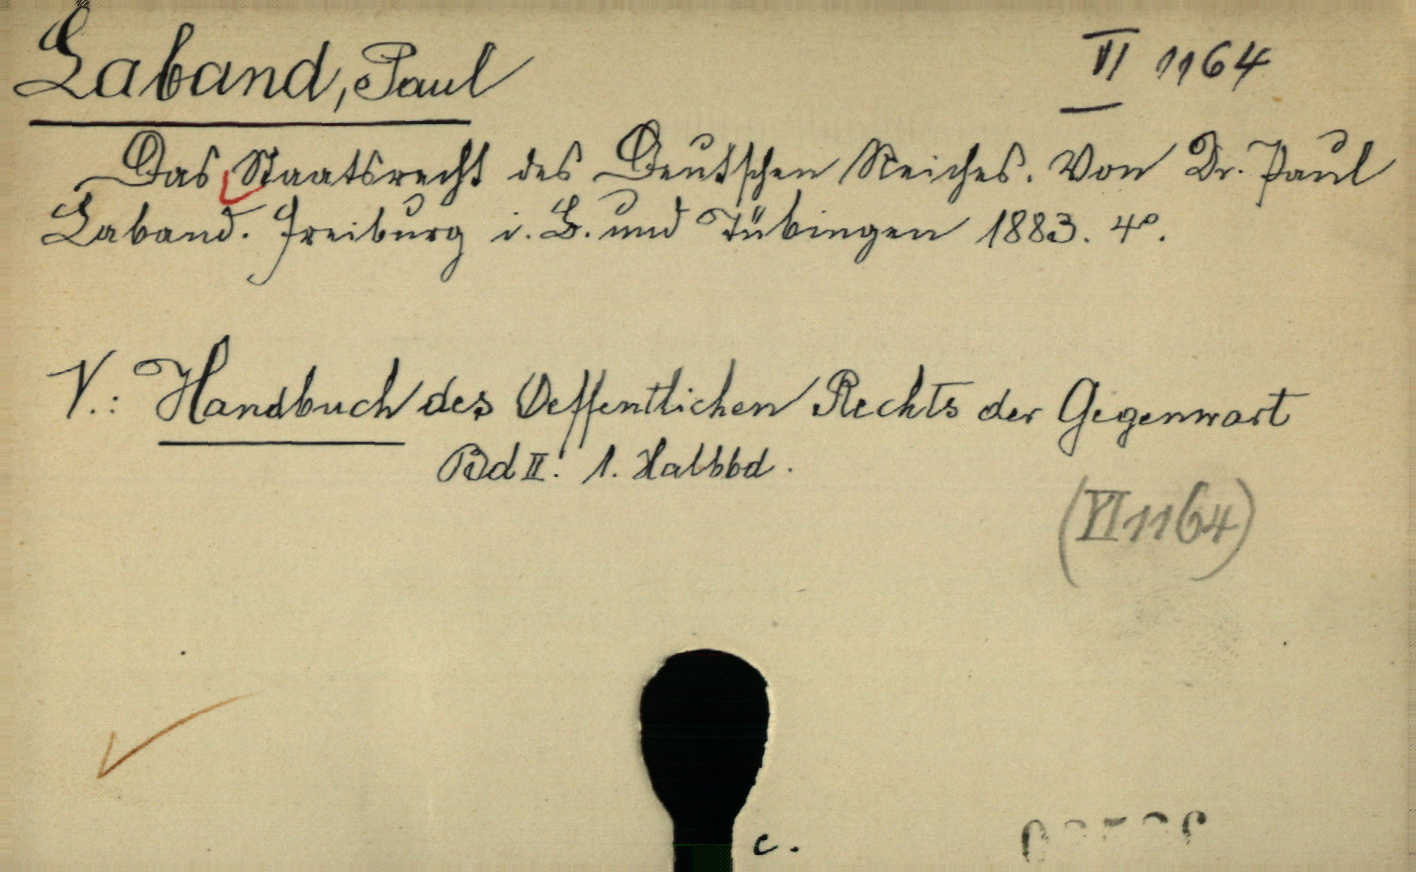 Laband, Paul
VI 1164
Das Staatsrecht des Deutschen Reiches. Von Dr. Paul
Laband. Freiburg i. B. und Tübingen 1883. 4°.
V.: Handbuch des Oeffentlichen Rechts der Gegenwart
Bd II. 1. Halbbd.
(VI 1164)
c.